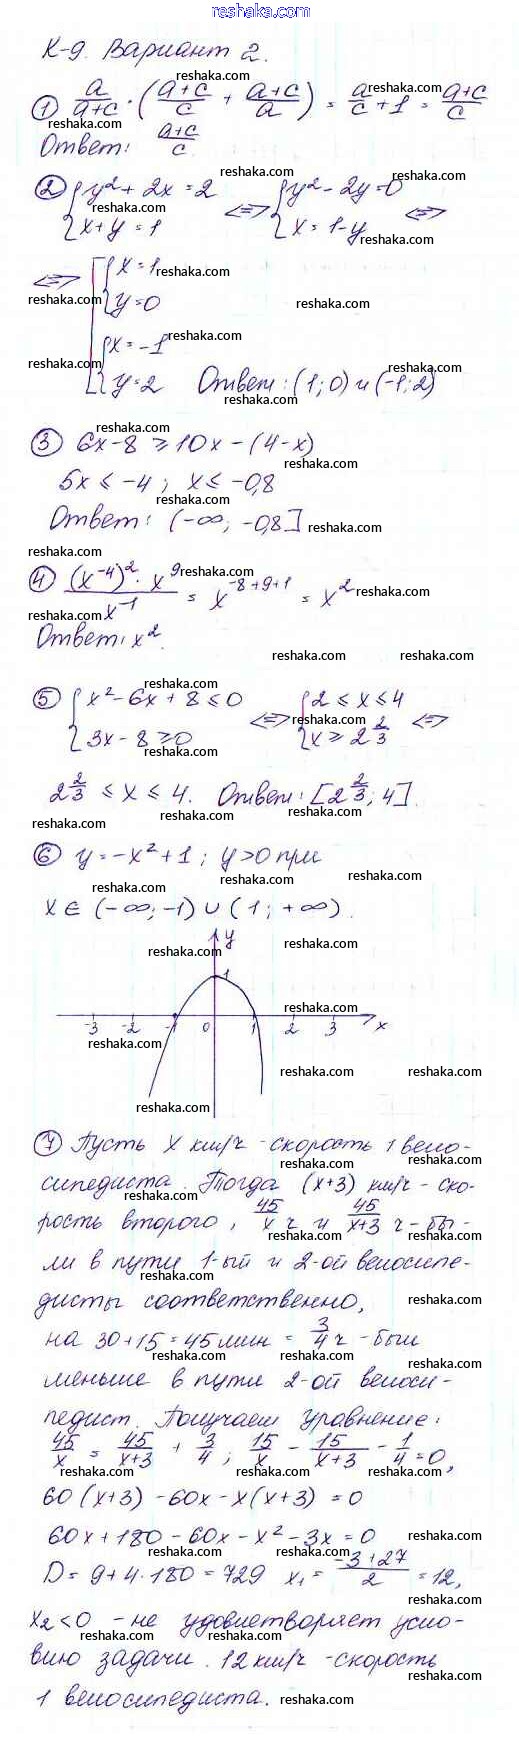 moreshka.com
К-9. Вариант 2.
① a/(a+c) · ((a+c)/c + (a+c)/a) = a/c + 1 = (a+c)/c
Ответ: (a+c)/c
② { y² + 2x = 2 <=> { y² - 2y = 0 <=>
x + y = 1 x = 1 - y
<=> [ { x = 1
y = 0
{ x = -1
y = 2 Ответ: (1; 0) и (-1; 2)
③ 6x - 8 ≥ 10x - (4 - x)
5x ≤ -4; x ≤ -0,8
Ответ: (-∞; -0,8]
④ (x⁻⁴)² · x⁹ / x⁻¹ = x^(-8+9+1) = x²
Ответ: x².
⑤ { x² - 6x + 8 ≤ 0 <=> { 2 ≤ x ≤ 4 <=>
3x - 8 ≥ 0 x ≥ 2 2/3
2 2/3 ≤ x ≤ 4. Ответ: [2 2/3; 4].
⑥ y = -x² + 1; y > 0 при
x ∈ (-∞; -1) ∪ (1; +∞).
y
1
-3 -2 -1 0 1 2 3 x
⑦ Пусть x км/ч - скорость 1 вело-
сипедиста. Тогда (x+3) км/ч - ско-
рость второго, 45/x ч и 45/(x+3) ч - бы-
ли в пути 1-ый и 2-ой велосипе-
дисты соответственно,
на 30 + 15 = 45 мин = 3/4 ч - был
меньше в пути 2-ой велоси-
педист. Получаем уравнение:
45/x = 45/(x+3) + 3/4; 15/x - 15/(x+3) - 1/4 = 0,
60(x+3) - 60x - x(x+3) = 0
60x + 180 - 60x - x² - 3x = 0
D = 9 + 4·180 = 729 x₁ = (-3+27)/2 = 12,
x₂ < 0 - не удовлетворяет усло-
вию задачи. 12 км/ч - скорость
1 велосипедиста.